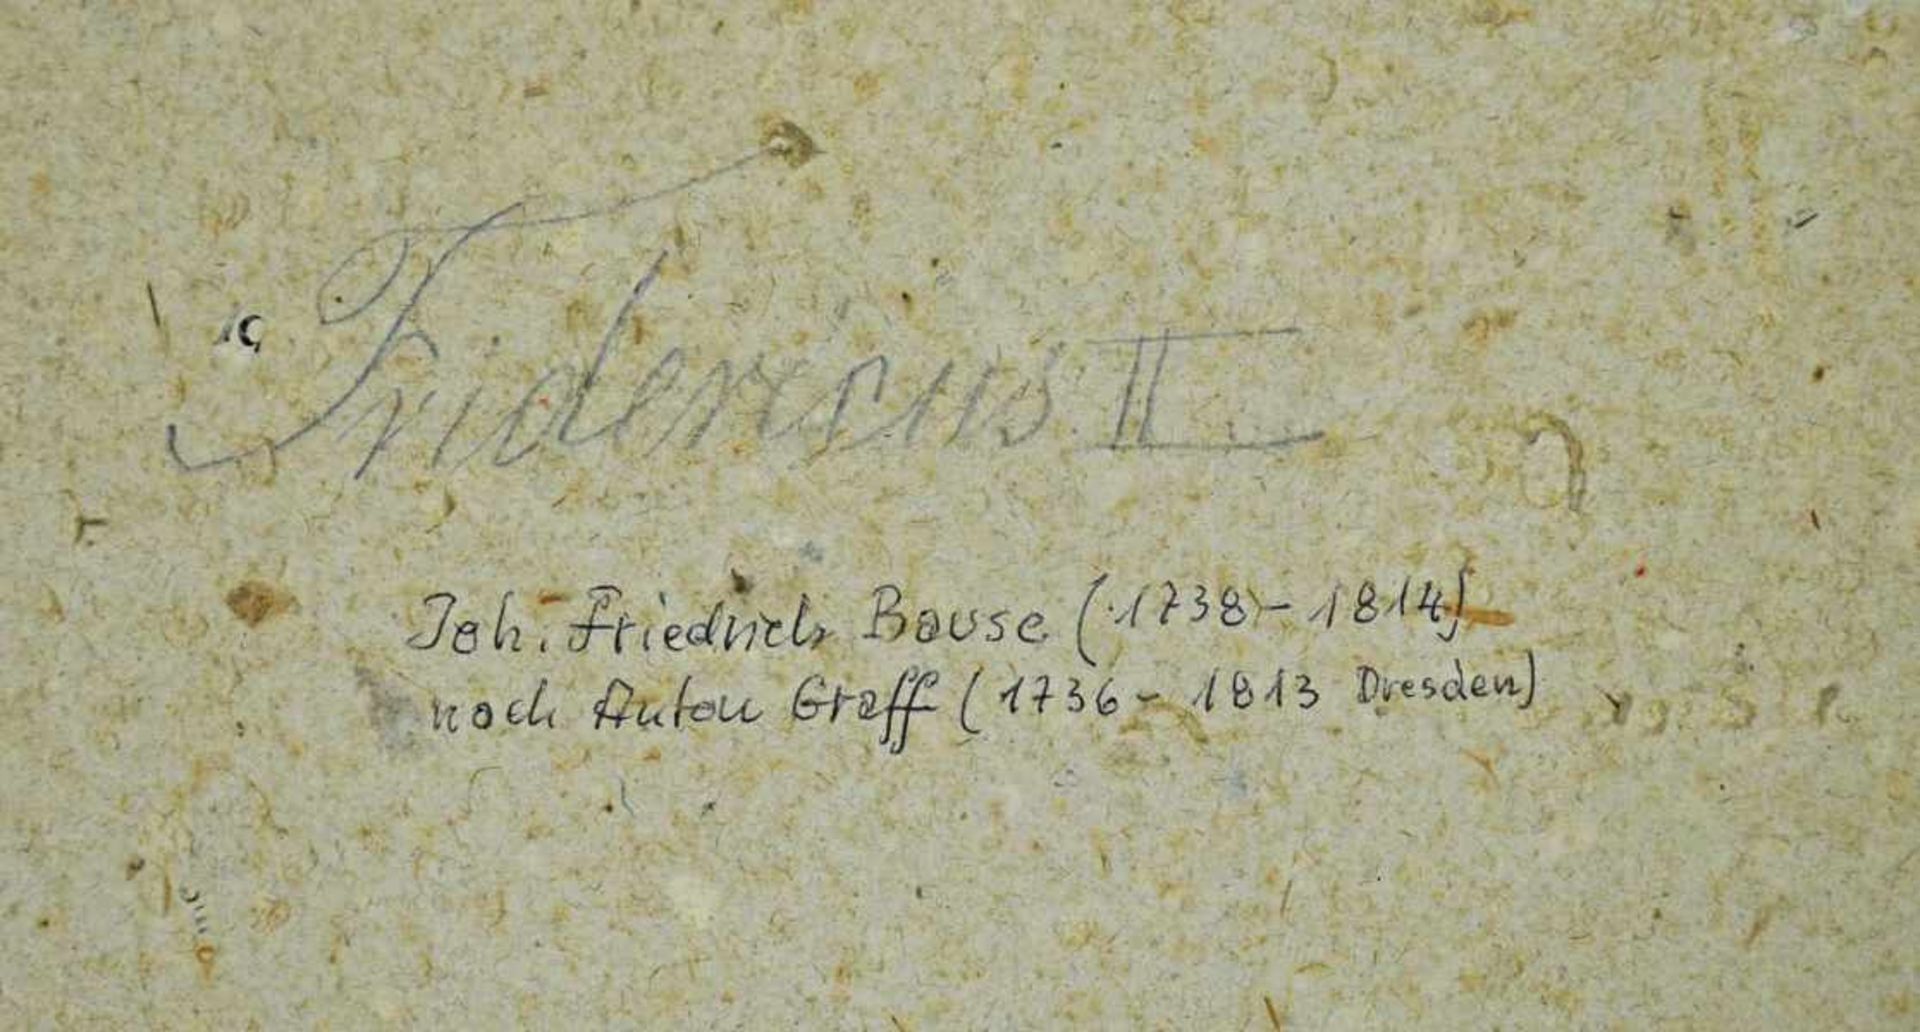 Fridericus II
Joh. Friedrich Bause (1738 - 1814)
nach Anton Graff (1736 - 1813 Dresden)